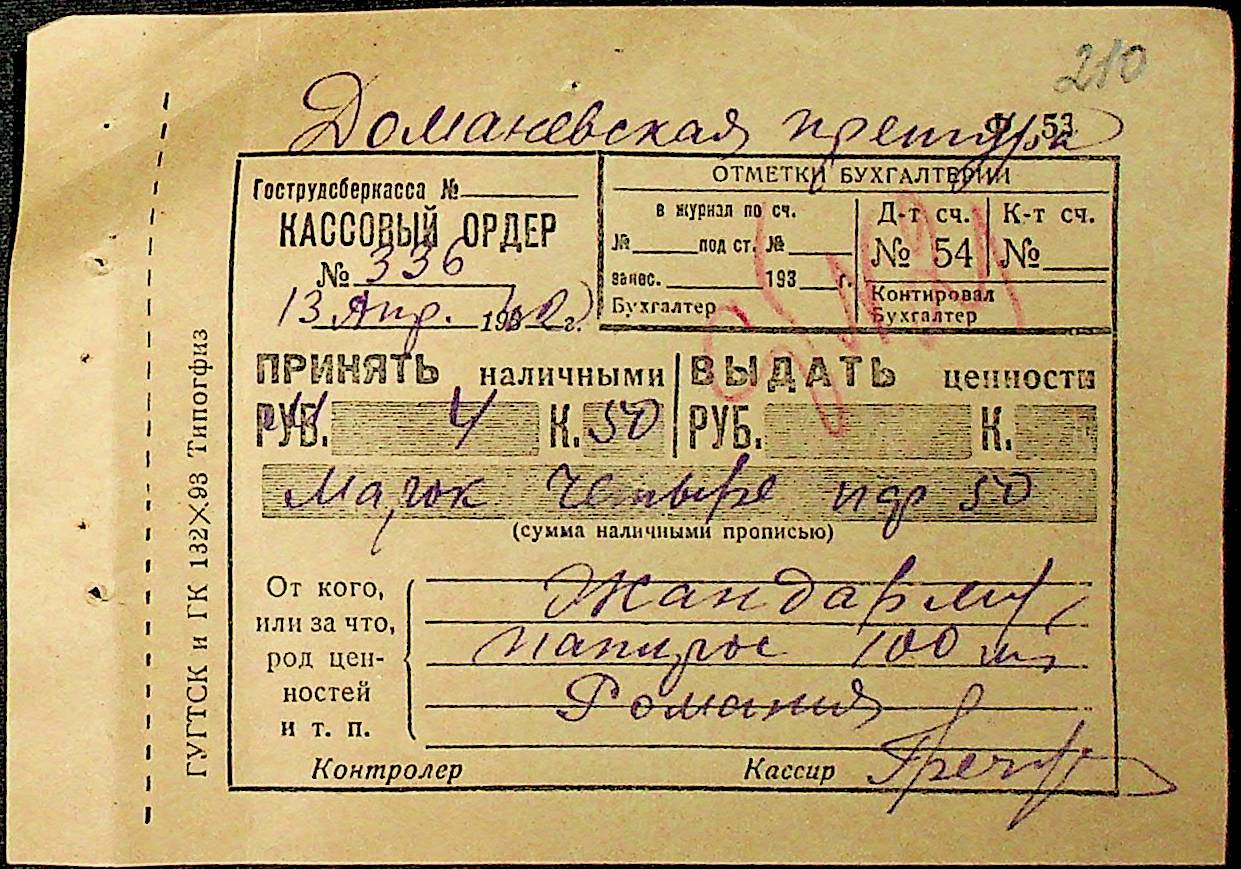 210
Доманевская претура
Ф. 53
Гострудсберкасса №
КАССОВЫЙ ОРДЕР
№ 336
13 Апр. 1942 г.
ОТМЕТКИ БУХГАЛТЕРИИ
в журнал по сч.
№ под ст. №
занес. 193 г.
Бухгалтер
Д-т сч. К-т сч.
№ 54 №
Контировал
Бухгалтер
ПРИНЯТЬ наличными ВЫДАТЬ ценности
РУБ. 4 К. 50 РУБ. К.
Марок Четыре пф 50
(сумма наличными прописью)
От кого,
или за что,
род цен-
ностей
и т. п.
Жандарм
папирос 100 шт
Романия
Контролер Кассир
ГУГТСК и ГК 132×93 Типогфиз